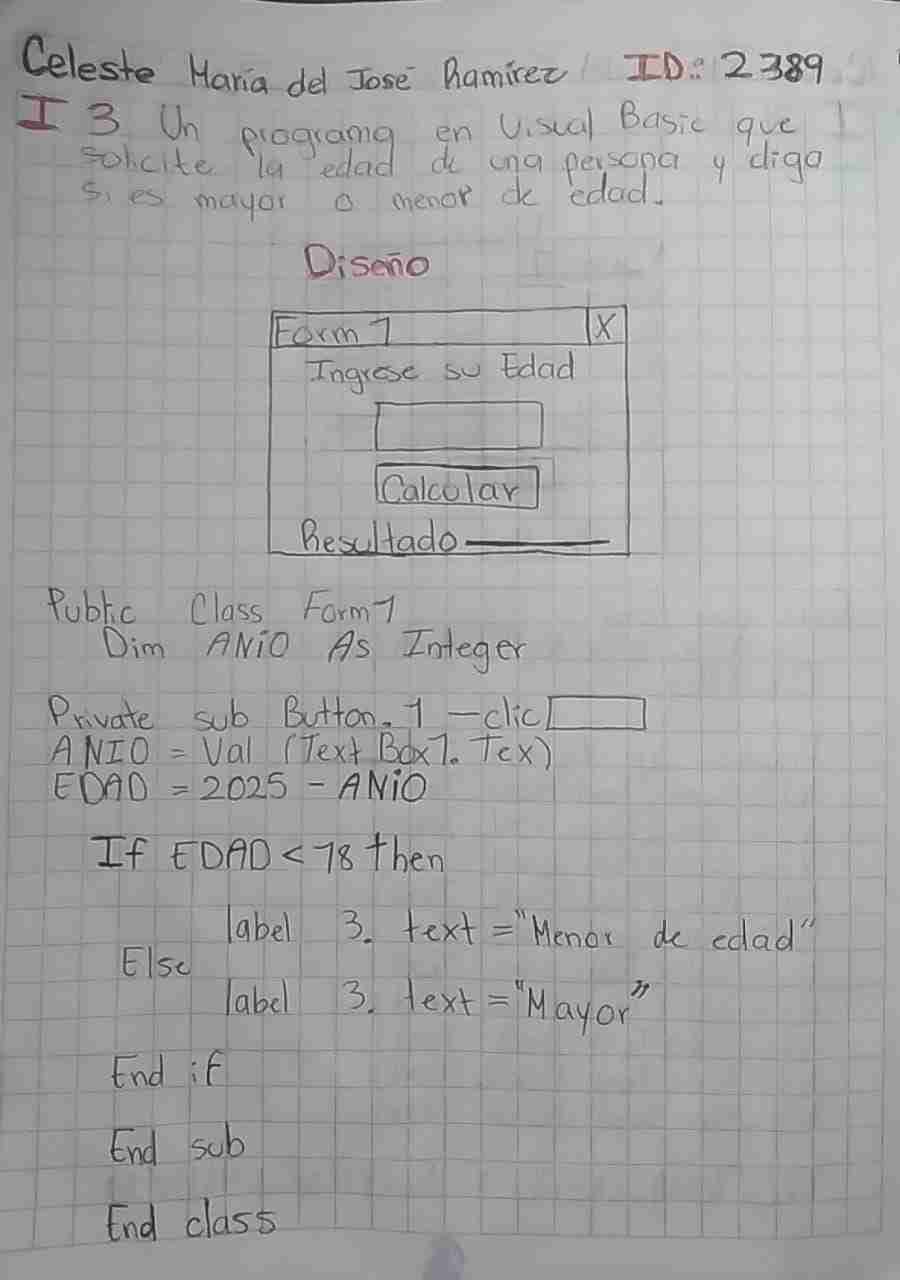 Celeste María del José Ramírez ID: 2389
I 3 Un programa en Visual Basic que
solicite la edad de una persona y diga
si es mayor o menor de edad.
Diseño
Form 1 X
Ingrese su Edad
Calcular
Resultado
Public Class Form1
Dim ANiO As Integer
Private sub Button. 1 -clic
ANIO = Val (Text Box1. Tex)
EDAD = 2025 - ANiO
If EDAD < 18 then
label 3. text = "Menor de edad"
Else
label 3. text = "Mayor"
End if
End sub
End class